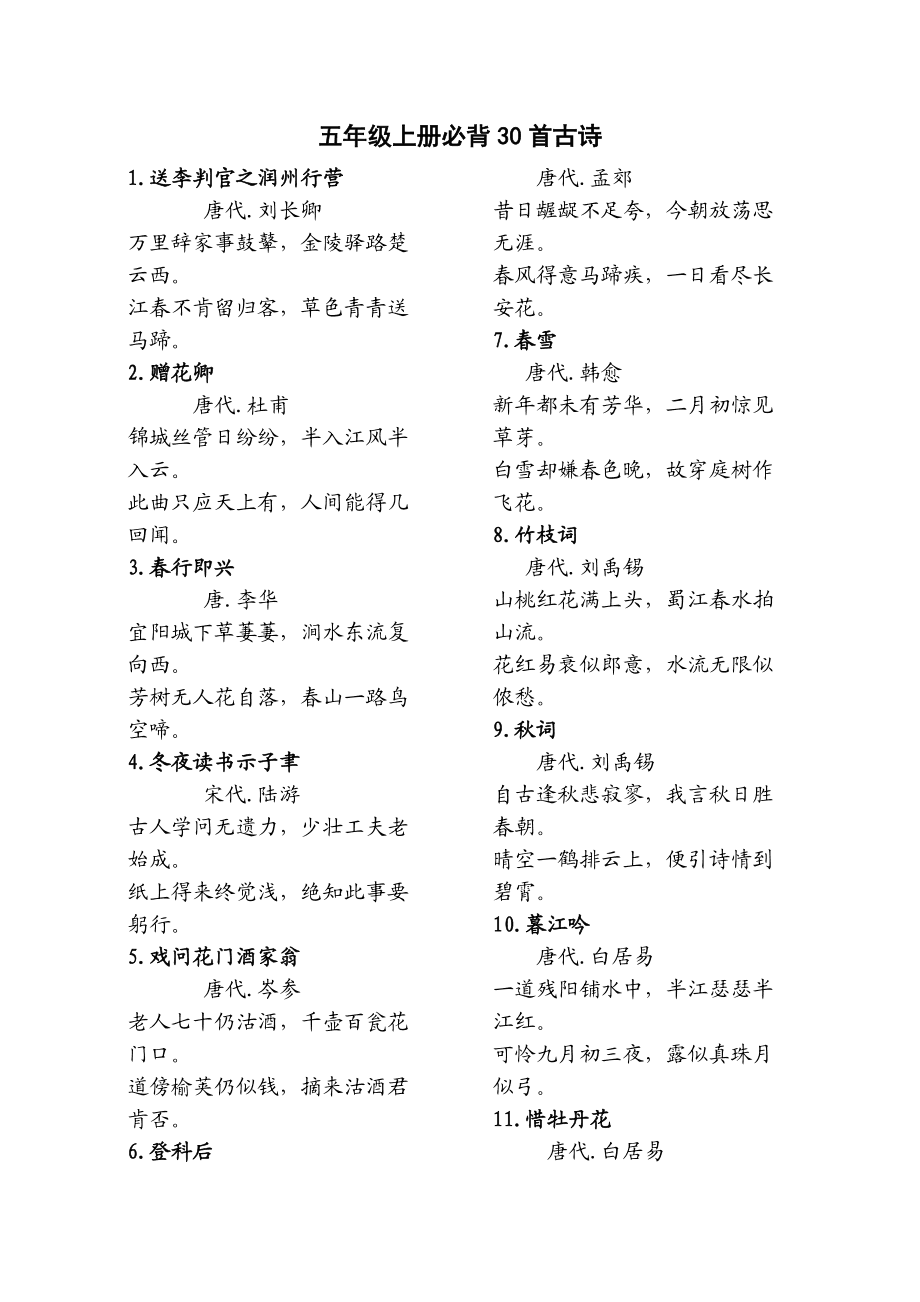 五年级上册必背 30 首古诗
1.送李判官之润州行营
唐代.刘长卿
万里辞家事鼓鼙，金陵驿路楚
云西。
江春不肯留归客，草色青青送
马蹄。
2.赠花卿
唐代.杜甫
锦城丝管日纷纷，半入江风半
入云。
此曲只应天上有，人间能得几
回闻。
3.春行即兴
唐.李华
宜阳城下草萋萋，涧水东流复
向西。
芳树无人花自落，春山一路鸟
空啼。
4.冬夜读书示子聿
宋代.陆游
古人学问无遗力，少壮工夫老
始成。
纸上得来终觉浅，绝知此事要
躬行。
5.戏问花门酒家翁
唐代.岑参
老人七十仍沽酒，千壶百瓮花
门口。
道傍榆荚仍似钱，摘来沽酒君
肯否。
6.登科后
唐代.孟郊
昔日龌龊不足夸，今朝放荡思
无涯。
春风得意马蹄疾，一日看尽长
安花。
7.春雪
唐代.韩愈
新年都未有芳华，二月初惊见
草芽。
白雪却嫌春色晚，故穿庭树作
飞花。
8.竹枝词
唐代.刘禹锡
山桃红花满上头，蜀江春水拍
山流。
花红易衰似郎意，水流无限似
侬愁。
9.秋词
唐代.刘禹锡
自古逢秋悲寂寥，我言秋日胜
春朝。
晴空一鹤排云上，便引诗情到
碧霄。
10.暮江吟
唐代.白居易
一道残阳铺水中，半江瑟瑟半
江红。
可怜九月初三夜，露似真珠月
似弓。
11.惜牡丹花
唐代.白居易